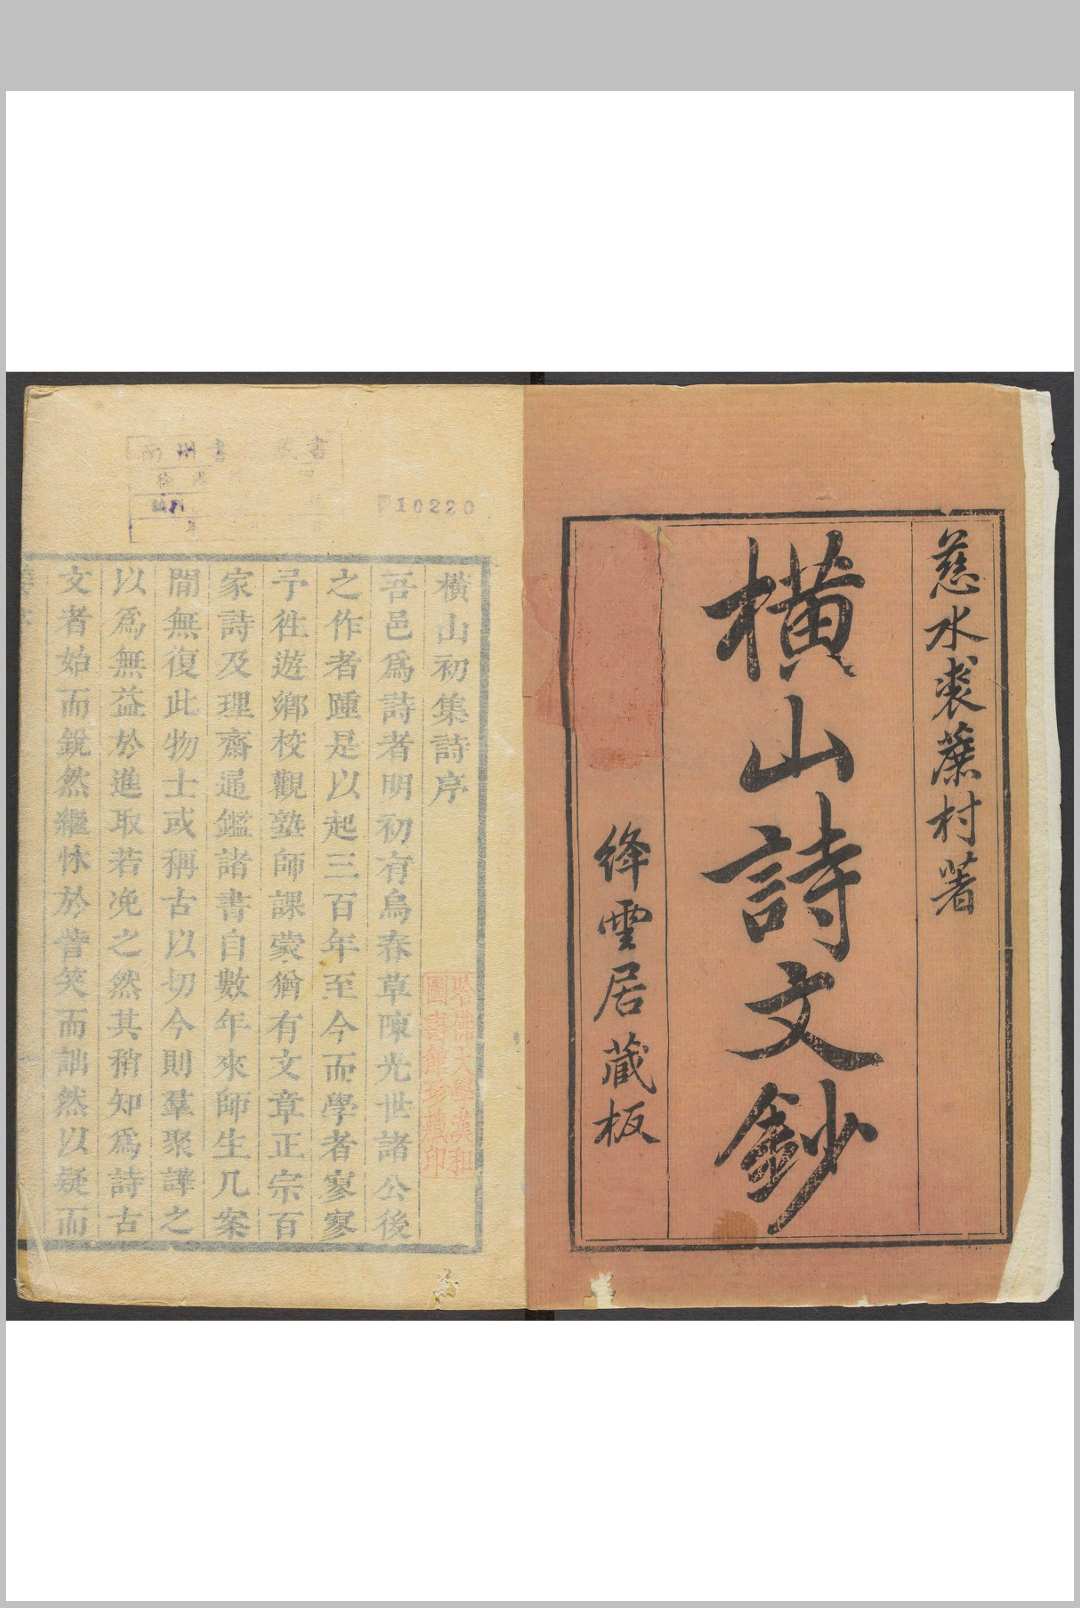 慈水裘蔗村著
橫山詩文鈔
絳雲居藏板
橫山初集詩序
吾邑爲詩者明初有烏春草陳光世諸公後
之作者踵是以起三百年至今而學者寥寥
予徃遊鄉校觀塾師課蒙猶有文章正宗百
家詩及理齋通鑑諸書自數年來師生几案
間無復此物士或稱古以切今則羣聚譁之
以爲無益於進取若凂之然其稍知爲詩古
文者始而銳然繼怵於訾笑而詘然以疑而
哈佛大學漢和
圖書館珍藏印
10220